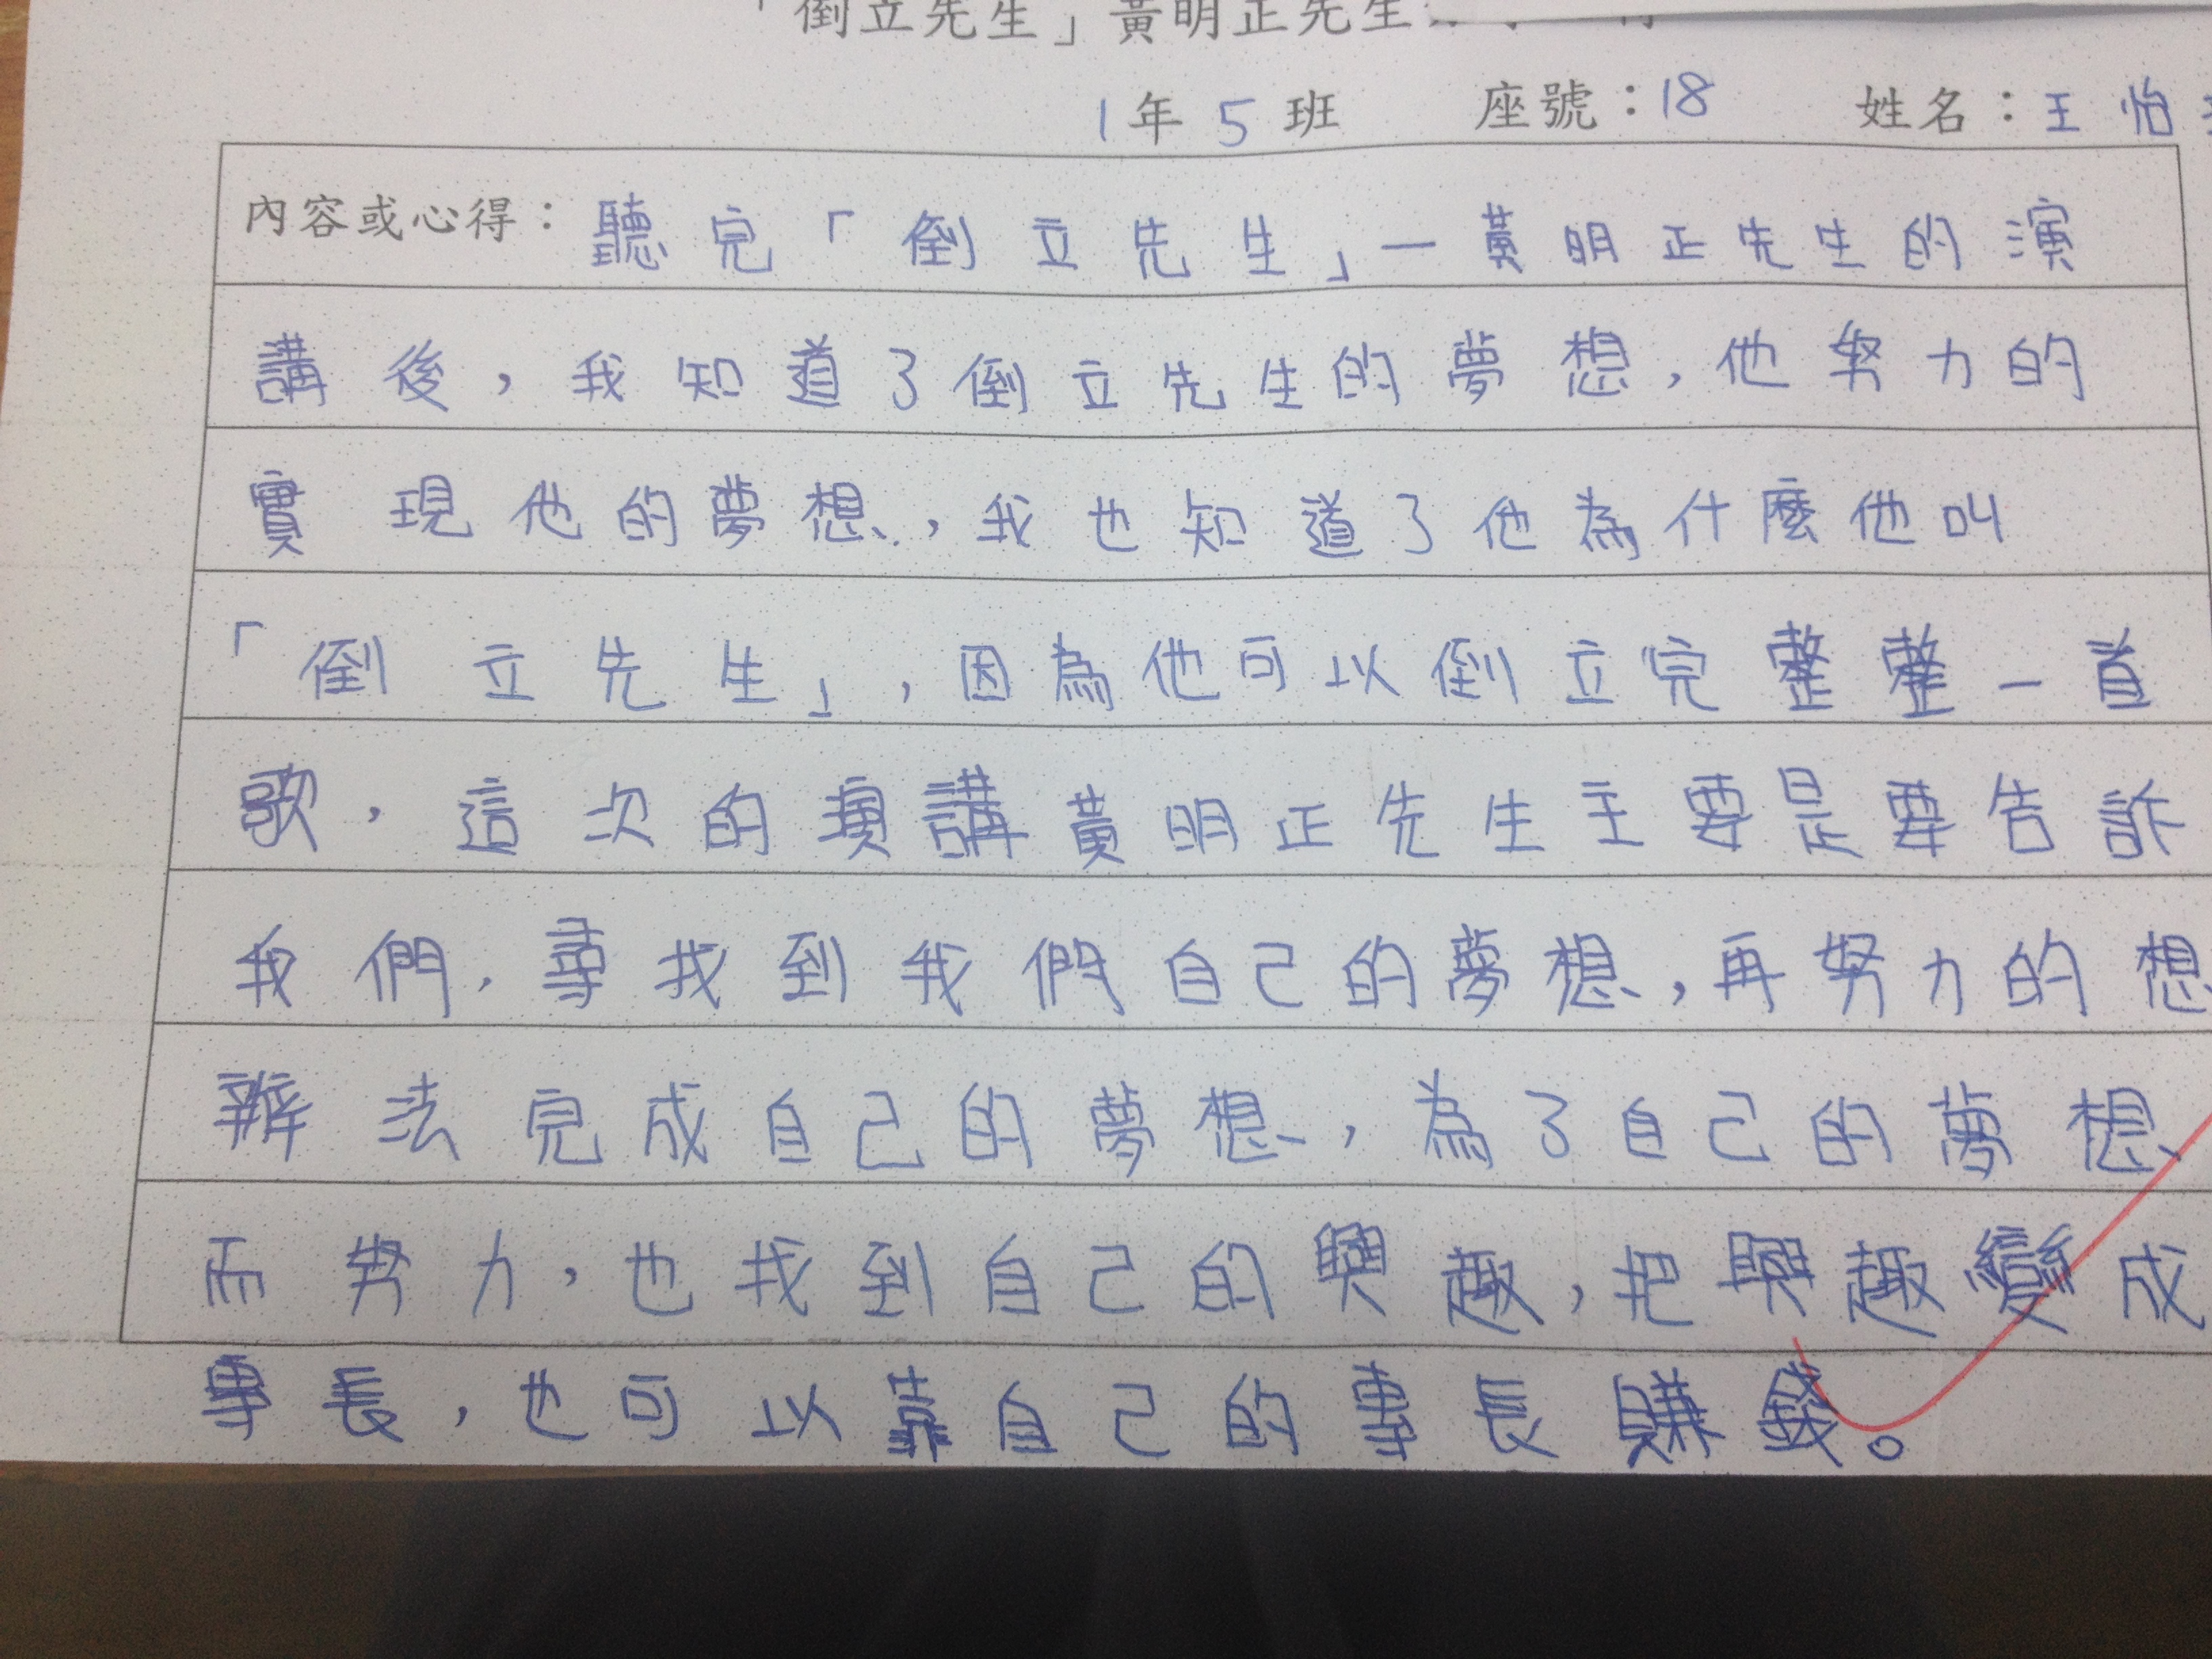 「倒立先生」黃明正先生
1年5班 座號：18 姓名：王怡
內容或心得：聽完「倒立先生」—黃明正先生的演
講後，我知道了倒立先生的夢想，他努力的
實現他的夢想，我也知道了他為什麼他叫
「倒立先生」，因為他可以倒立完整整一首
歌，這次的演講黃明正先生主要是要告訴
我們，尋找到我們自己的夢想，再努力的想
辦法完成自己的夢想，為了自己的夢想
而努力，也找到自己的興趣，把興趣變成
專長，也可以靠自己的專長賺錢。